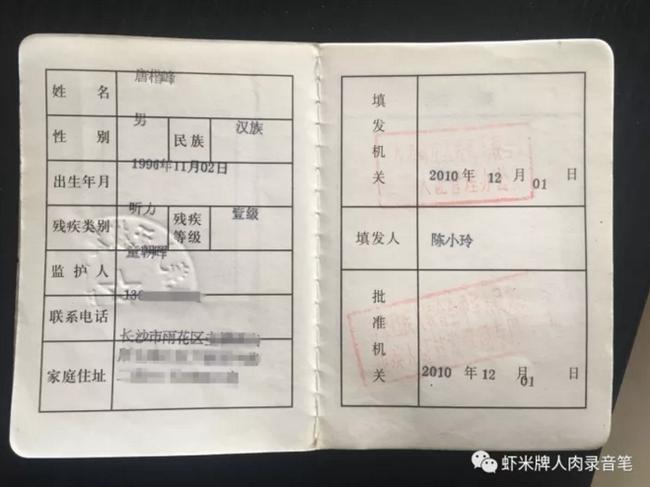 姓名 唐楷峰
性别 男 民族 汉族
出生年月 1996年11月02日
残疾类别 听力 残疾等级 壹级
监护人 童朝晖
联系电话 136
家庭住址 长沙市雨花区
填发机关
2010年12月01日
填发人 陈小玲
批准机关
2010年12月01日
虾米牌人肉录音笔